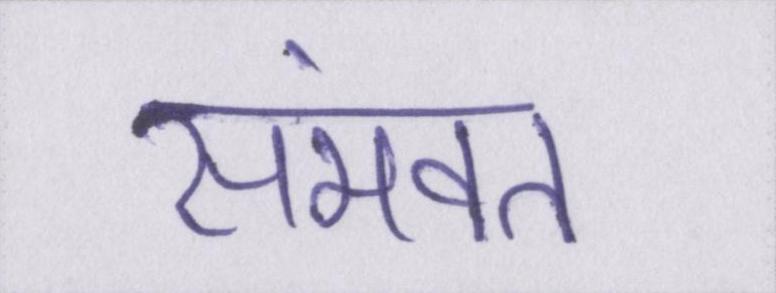 संभवत